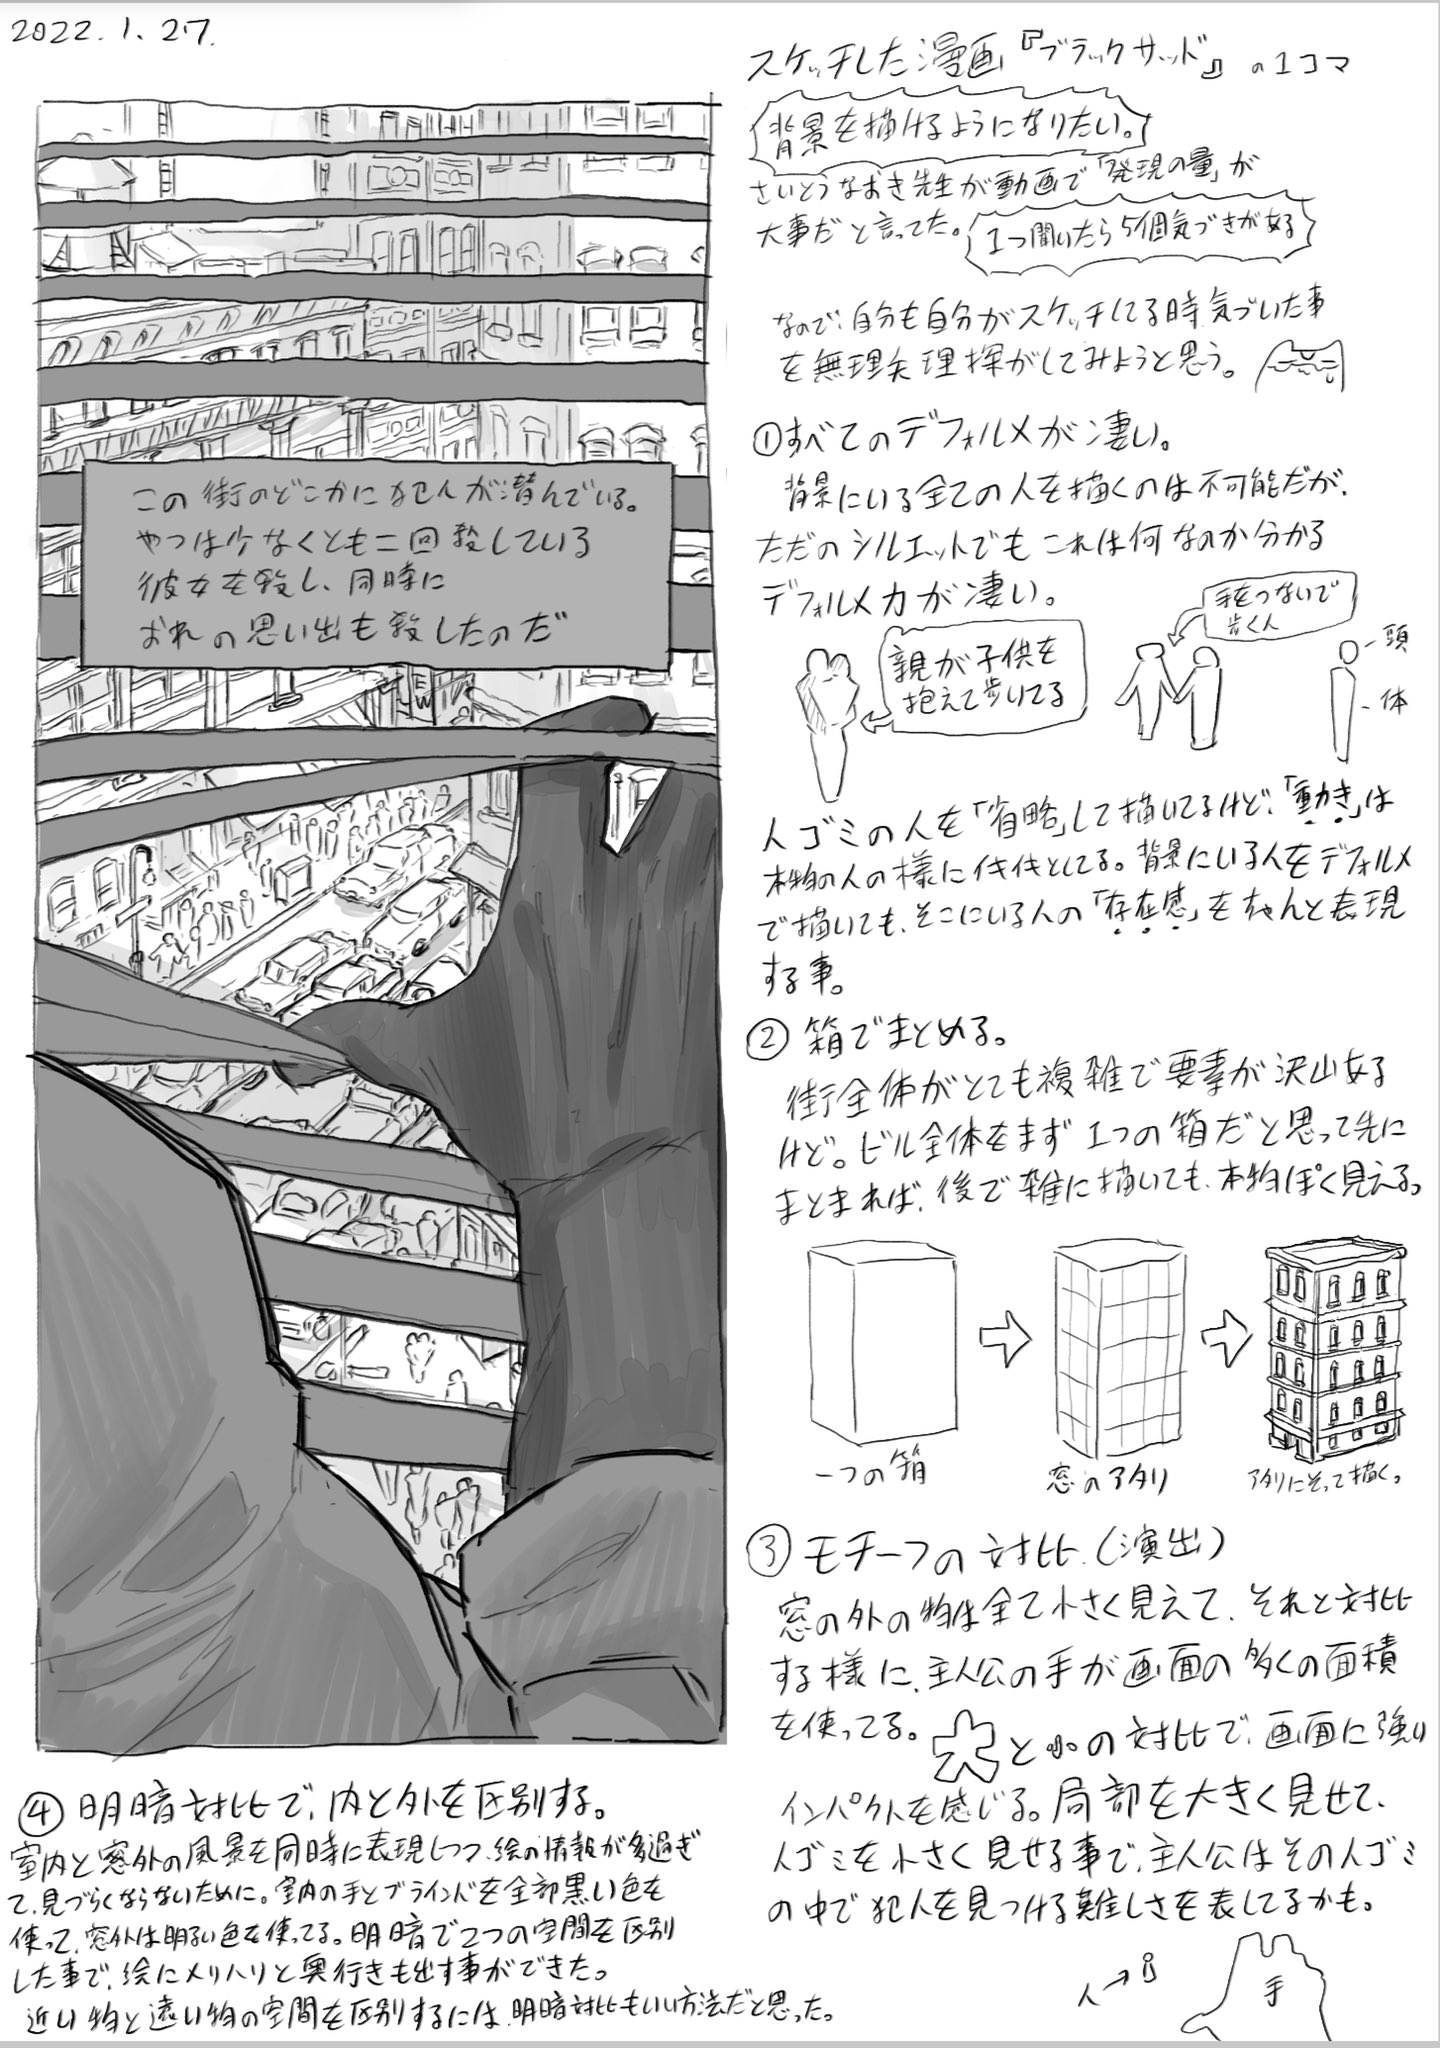 2022.1.27.
スケッチした漫画『ブラックサッド』の1コマ
背景を描けるようになりたい。
さいとうなおき先生が動画で「発現の量」が
大事だと言ってた。1つ聞いたら5個気づきがある
なので、自分も自分がスケッチしてる時気づいた事
を無理矢理探がしてみようと思う。
①すべてのデフォルメが凄い。
背景にいる全ての人を描くのは不可能だが、
ただのシルエットでもこれは何なのか分かる
デフォルメ力が凄い。
手をつないで
歩く人
親が子供を
抱えて歩いてる
頭
体
人ゴミの人を「省略」して描いてるけど、「動き」は
本物の人の様にイキイキとしてる。背景にいる人をデフォルメ
で描いても、そこにいる人の「存在感」をちゃんと表現
する事。
②箱でまとめる。
街全体がとても複雑で要素が沢山ある
けど。ビル全体をまず1つの箱だと思って先に
まとまれば、後で雑に描いても、本物ぽく見える。
一つの箱
窓のアタリ
アタリにそって描く。
③モチーフの対比.(演出)
窓の外の物は全て小さく見えて、それと対比
する様に、主人公の手が画面の多くの面積
を使ってる。大と小の対比で、画面に強い
インパクトを感じる。局部を大きく見せて、
人ゴミを小さく見せる事で、主人公はその人ゴミ
の中で犯人を見つける難しさを表してるかも。
人
手
この街のどこかに犯人が潜んでいる。
やつは少なくとも二回殺している
彼女を殺し、同時に
おれの思い出も殺したのだ
④明暗対比で、内と外を区別する。
室内と窓外の風景を同時に表現しつつ、絵の情報が多過ぎ
て、見づらくならないために。室内の手とブラインドを全部黒い色を
使って、窓外は明るい色を使ってる。明暗で2つの空間を区別
した事で、絵にメリハリと奥行きも出す事ができた。
近い物と遠い物の空間を区別するには、明暗対比もいい方法だと思った。